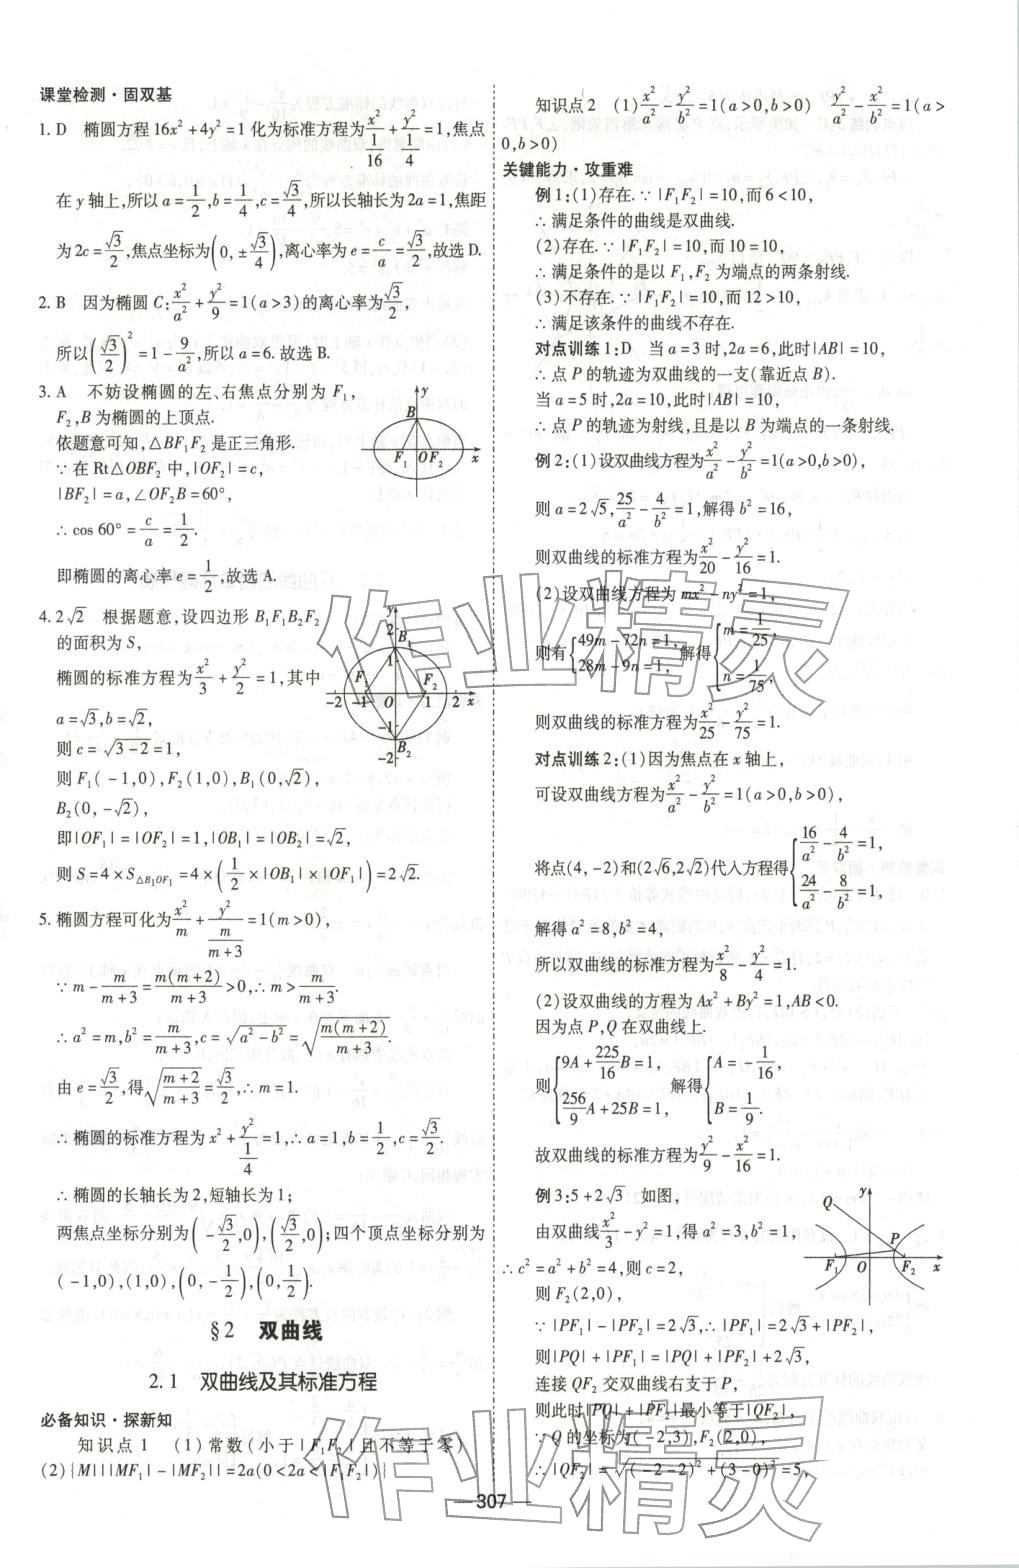 课堂检测·固双基
1. D 椭圆方程16x²+4y²=1化为标准方程为x²/(1/16)+y²/(1/4)=1,焦点
在y轴上,所以a=1/2,b=1/4,c=√3/4,所以长轴长为2a=1,焦距
为2c=√3/2,焦点坐标为(0,±√3/4),离心率为e=c/a=√3/2,故选D.
2. B 因为椭圆C:x²/a²+y²/9=1(a>3)的离心率为√3/2,
所以(√3/2)²=1-9/a²,所以a=6.故选B.
3. A 不妨设椭圆的左、右焦点分别为F₁,
F₂,B为椭圆的上顶点.
依题意可知,△BF₁F₂是正三角形.
∵在Rt△OBF₂中,|OF₂|=c,
|BF₂|=a,∠OF₂B=60°,
∴cos 60°=c/a=1/2.
即椭圆的离心率e=1/2,故选A.
y B F₁ O F₂ x
4. 2√2 根据题意,设四边形B₁F₁B₂F₂
的面积为S,
椭圆的标准方程为x²/3+y²/2=1,其中
a=√3,b=√2,
则c=√(3-2)=1,
则F₁(-1,0),F₂(1,0),B₁(0,√2),
B₂(0,-√2),
即|OF₁|=|OF₂|=1,|OB₁|=|OB₂|=√2,
则S=4×S△B₁OF₁=4×(1/2×|OB₁|×|OF₁|)=2√2.
y 2 B₁ 1 F₁ F₂ -2 -1 O 1 2 x -1 -2 B₂
5. 椭圆方程可化为x²/m+y²/(m/(m+3))=1(m>0),
∵m-m/(m+3)=m(m+2)/(m+3)>0,∴m>m/(m+3).
∴a²=m,b²=m/(m+3),c=√(a²-b²)=√(m(m+2)/(m+3)).
由e=√3/2,得√((m+2)/(m+3))=√3/2,∴m=1.
∴椭圆的标准方程为x²+y²/(1/4)=1,∴a=1,b=1/2,c=√3/2.
∴椭圆的长轴长为2,短轴长为1;
两焦点坐标分别为(-√3/2,0),(√3/2,0);四个顶点坐标分别为
(-1,0),(1,0),(0,-1/2),(0,1/2).
§2 双曲线
2.1 双曲线及其标准方程
必备知识·探新知
知识点1 (1)常数(小于|F₁F₂|且不等于零)
(2){M|||MF₁|-|MF₂||=2a(0<2a<|F₁F₂|)}
知识点2 (1)x²/a²-y²/b²=1(a>0,b>0) y²/a²-x²/b²=1(a>
0,b>0)
关键能力·攻重难
例1:(1)存在.∵|F₁F₂|=10,而6<10,
∴满足条件的曲线是双曲线.
(2)存在.∵|F₁F₂|=10,而10=10,
∴满足条件的是以F₁,F₂为端点的两条射线.
(3)不存在.∵|F₁F₂|=10,而12>10,
∴满足该条件的曲线不存在.
对点训练1:D 当a=3时,2a=6,此时|AB|=10,
∴点P的轨迹为双曲线的一支(靠近点B).
当a=5时,2a=10,此时|AB|=10,
∴点P的轨迹为射线,且是以B为端点的一条射线.
例2:(1)设双曲线方程为x²/a²-y²/b²=1(a>0,b>0),
则a=2√5,25/a²-4/b²=1,解得b²=16,
则双曲线的标准方程为x²/20-y²/16=1.
(2)设双曲线方程为mx²-ny²=1,
则有{49m-72n=1, 28m-9n=1, 解得{m=1/25, n=1/75,
则双曲线的标准方程为x²/25-y²/75=1.
对点训练2:(1)因为焦点在x轴上,
可设双曲线方程为x²/a²-y²/b²=1(a>0,b>0),
将点(4,-2)和(2√6,2√2)代入方程得{16/a²-4/b²=1, 24/a²-8/b²=1,
解得a²=8,b²=4,
所以双曲线的标准方程为x²/8-y²/4=1.
(2)设双曲线的方程为Ax²+By²=1,AB<0.
因为点P,Q在双曲线上.
则{9A+225/16B=1, 256/9A+25B=1, 解得{A=-1/16, B=1/9.
故双曲线的标准方程为y²/9-x²/16=1.
例3:5+2√3 如图,
由双曲线x²/3-y²=1,得a²=3,b²=1,
∴c²=a²+b²=4,则c=2,
则F₂(2,0),
y Q P F₁ O F₂ x
∵|PF₁|-|PF₂|=2√3,∴|PF₁|=2√3+|PF₂|,
则|PQ|+|PF₁|=|PQ|+|PF₂|+2√3,
连接QF₂交双曲线右支于P,
则此时|PQ|+|PF₂|最小等于|QF₂|,
∵Q的坐标为(-2,3),F₂(2,0),
∴|QF₂|=√((-2-2)²+(3-0)²)=5,
307
作业精灵
作业精灵